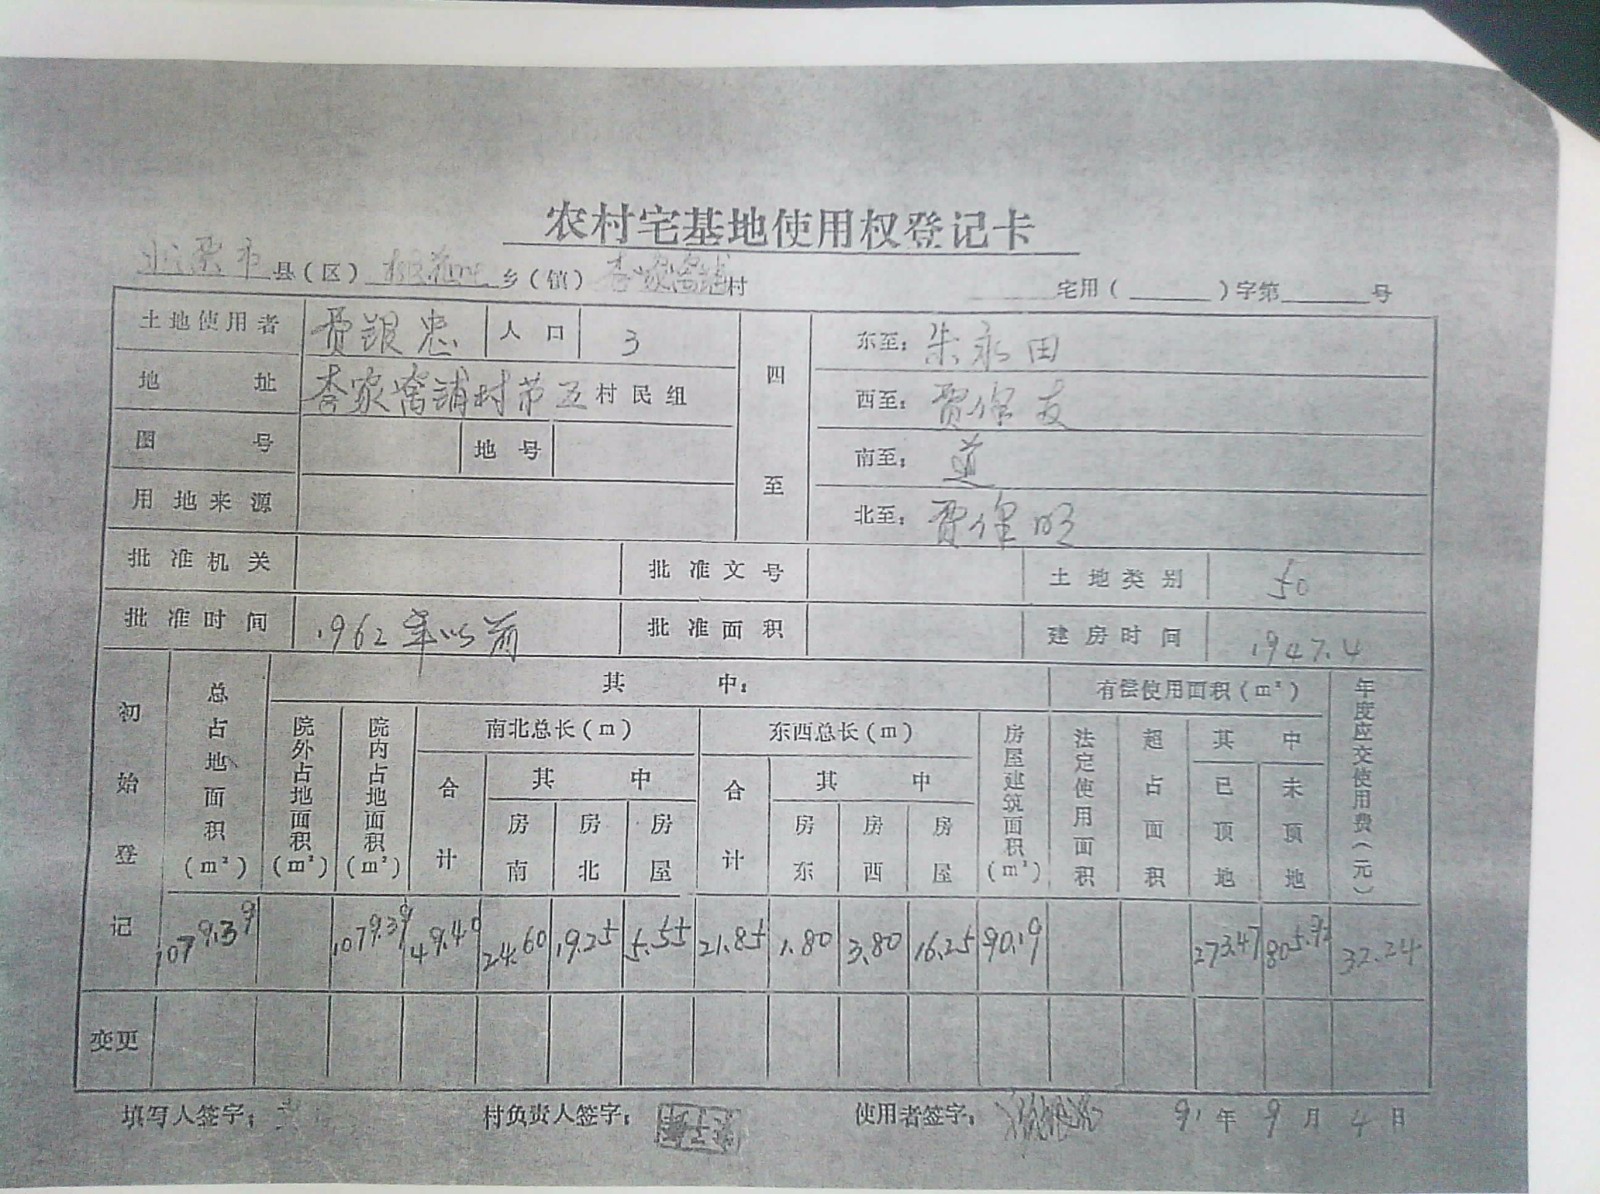 农村宅基地使用权登记卡
北票市县(区) 乡(镇) 李家窝铺村 宅用( )字第 号
土地使用者 贾银忠 人口 3 四至 东至：朱永田
地址 李家窝铺村第五村民组 西至：贾保友
图号 地号 南至：道
用地来源 北至：贾保明
批准机关 批准文号 土地类别 50
批准时间 1962年以前 批准面积 建房时间 1947.4
初始登记 总占地面积(m²) 其中： 有偿使用面积(m²) 年度应交使用费(元)
院外占地面积(m²) 院内占地面积(m²) 南北总长(m) 东西总长(m) 房屋建筑面积(m²) 法定使用面积 超占面积 其中
合计 其中 合计 其中 已顶地 未顶地
房南 房北 房屋 房东 房西 房屋
1079.39 1079.39 49.40 24.60 19.25 5.55 21.85 1.80 3.80 16.25 90.19 273.47 805.92 32.24
变更
填写人签字： 村负责人签字： 使用者签字： 91年9月4日